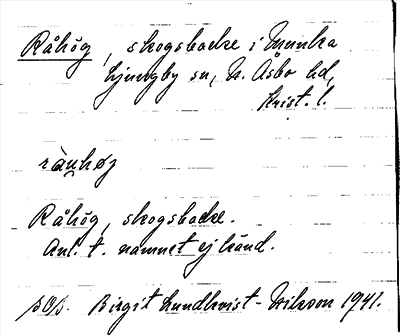 Råhög, skogsbacke i Munka
Ljungby sn, N. Åsbo hd,
Krist. l.
Råhög, skogsbacke.
Anl. t. namnet ej känd.
Birgit Lundkvist-Nilsson 1941.